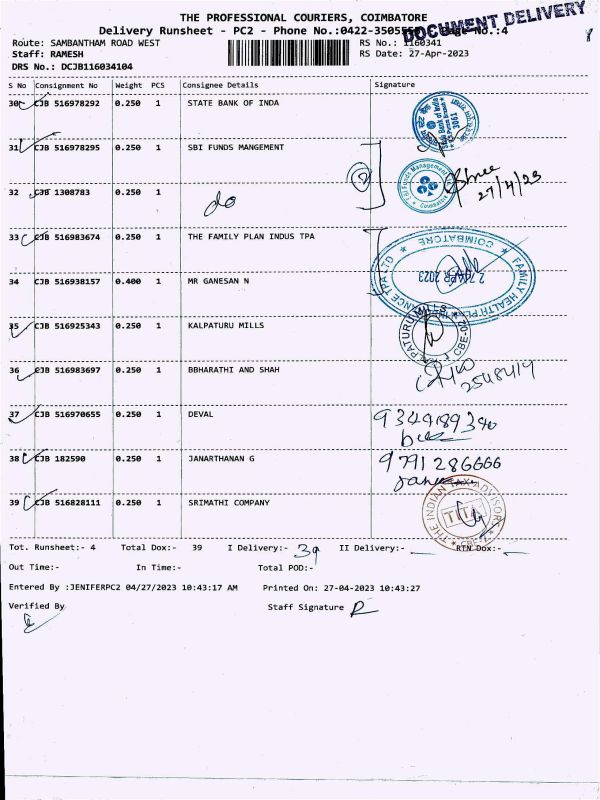 THE PROFESSIONAL COURIERS, COIMBATORE
DOCUMENT DELIVERY
Delivery Runsheet - PC2 - Phone No.:0422-350555 Page No.:4
Route: SAMBANTHAM ROAD WEST RS No.: 1160341
Staff: RAMESH RS Date: 27-Apr-2023
DRS No.: DCJB116034104
S No Consignment No Weight PCS Consignee Details Signature
30 CJB 516978292 0.250 1 STATE BANK OF INDA
31 CJB 516978295 0.250 1 SBI FUNDS MANGEMENT
2
27/4/23
32 CJB 1308783 0.250 1 do
33 CJB 516983674 0.250 1 THE FAMILY PLAN INDUS TPA
FAMILY HEALTH PLAN TPA LTD COIMBATORE
27 APR 2023
34 CJB 516938157 0.400 1 MR GANESAN N
35 CJB 516925343 0.250 1 KALPATURU MILLS
36 CJB 516983697 0.250 1 BBHARATHI AND SHAH
37 CJB 516970655 0.250 1 DEVAL
38 CJB 182590 0.250 1 JANARTHANAN G
9791286666
39 CJB 516828111 0.250 1 SRIMATHI COMPANY
THE INDIAN TAX ADVISOR
TITA
CBE-2
Tot. Runsheet:- 4 Total Dox:- 39 I Delivery:- 39 II Delivery:- RTN Dox:-
Out Time:- In Time:- Total POD:-
Entered By :JENIFERPC2 04/27/2023 10:43:17 AM Printed On: 27-04-2023 10:43:27
Verified By Staff Signature